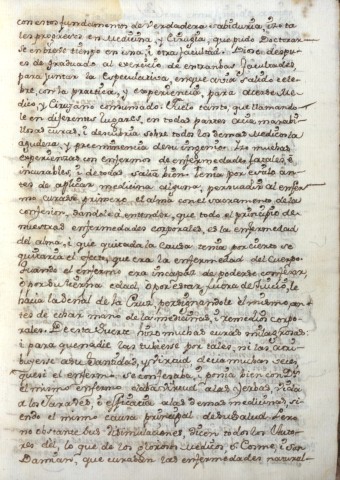 con estos fundamentos de verdadera sabiduria, hizo ta
les progresos en Medicina, y Cirugia, que pudo Doctorar
se en breve tiempo en una, i otra facultad. Dióse des pu
es de graduado al exercicio de entrambas facultades
para juntar la Especulativa, en que avia salido cele
bre, con la practica, y experiencia, para acerse Me
dico, y Cirujano consumado: tanto, que llamando
le en diferentes lugares, en todas partes acia maravi
llosas curas, i descubria sobre todos los demas Medicos la
agudeza, y preeminencia de su ingenio. Izo muchas
experiencias con enfermos de enfermedades fatales, è
incurables, i de todas salia bien. Tenia por estilo an
tes de aplicar medicina alguna, persuadir al enfer
mo, curase primero el alma con el sacramento de la
confesion, dandole á entender, que todo el principio de
nuestras enfermedades corporales, es la enfermedad
del alma, i que quitada la causa tenia por cierto se
quitaria el efecto, que era la enfermedad del Cuerpo.
Quando el enfermo era incapáz de poderse confesar,
ò por su tierna edad, ò por estar fuera de juicio, le
hacia la señal de la Cruz, persignandole el mismo, an
tes de echar mano de las medicinas, i remedios corpo
rales. De esta suerte hizo muchas curas milagrosas
i para que nadie las tubiese por tales, ni las atri
buyese a su Santidad, y virtud decia muchas veces,
que si el enfermo se confesaba, y ponia bien con Ds.
el mismo enfermo daba virtud a las Yerbas, vida
a los Xaraves, i eficacia a las demas medicinas, si
endo el mismo causa principal de su salud. Pero
no obstante sus disimulaciones, dicen todos los Auto
res del lo que de los gloriosos Medicos S. Cosme, i San
Damian, que curaban las enfermedades natural-